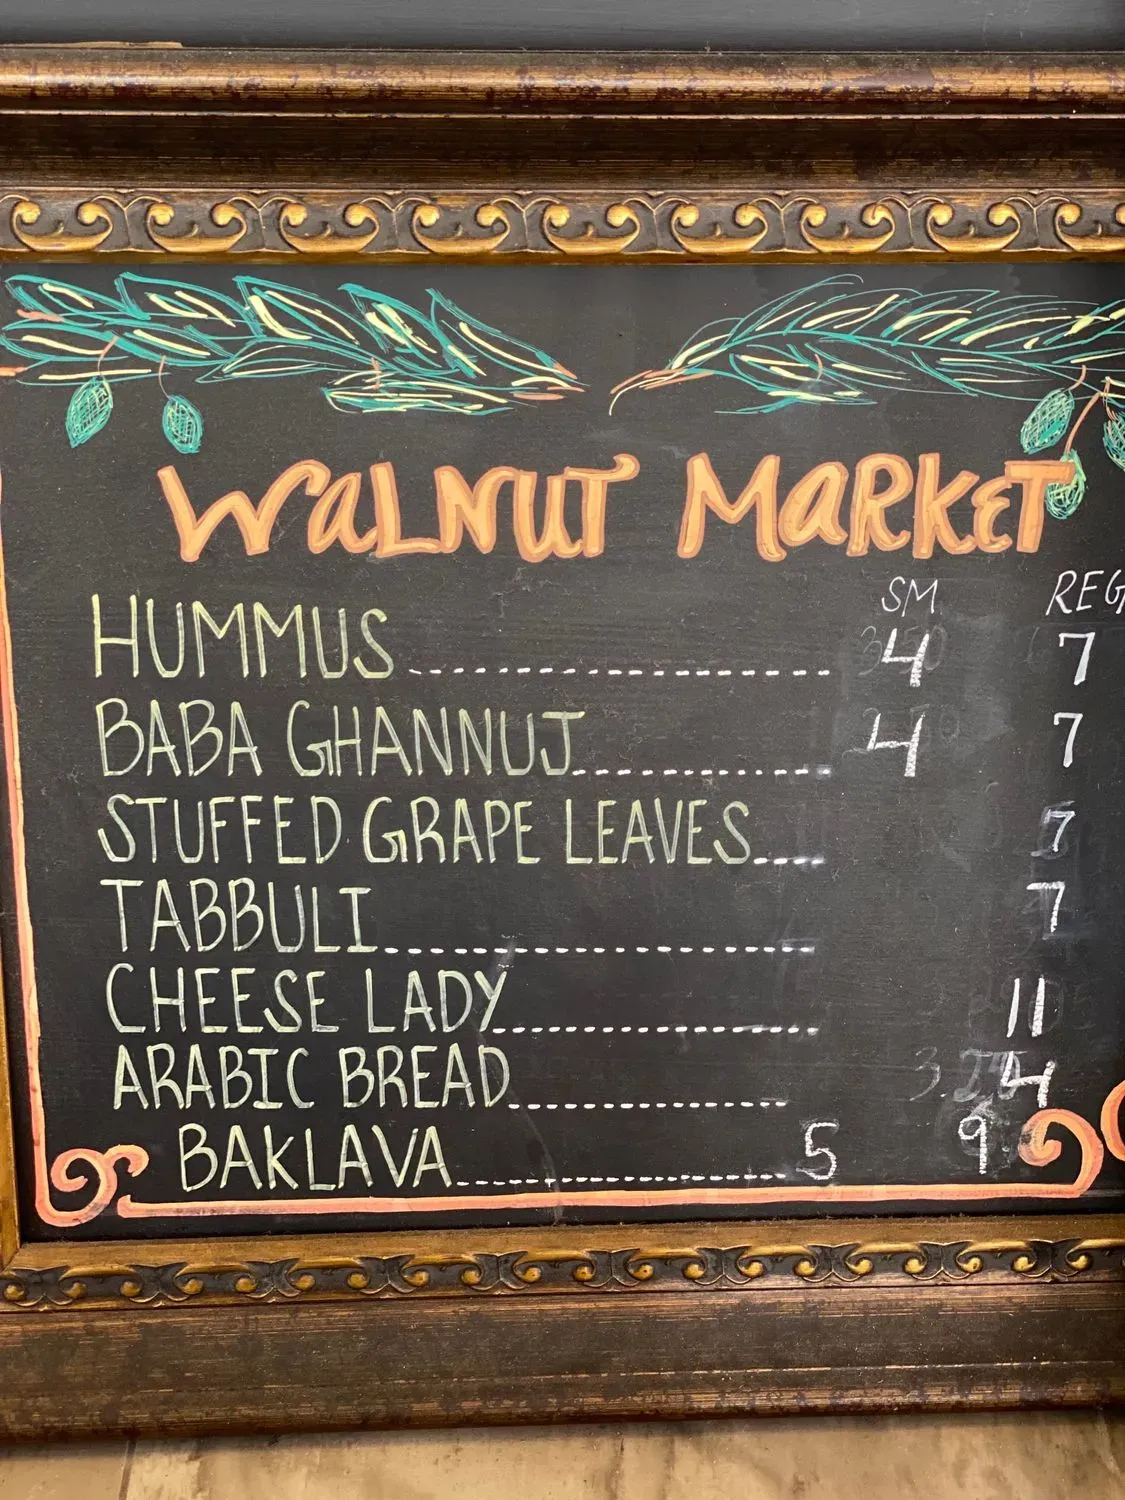 WALNUT MARKET
SM REG
HUMMUS 4 7
BABA GHANNUJ 4 7
STUFFED GRAPE LEAVES 7
TABBULI 7
CHEESE LADY 11
ARABIC BREAD 4
BAKLAVA 5 9